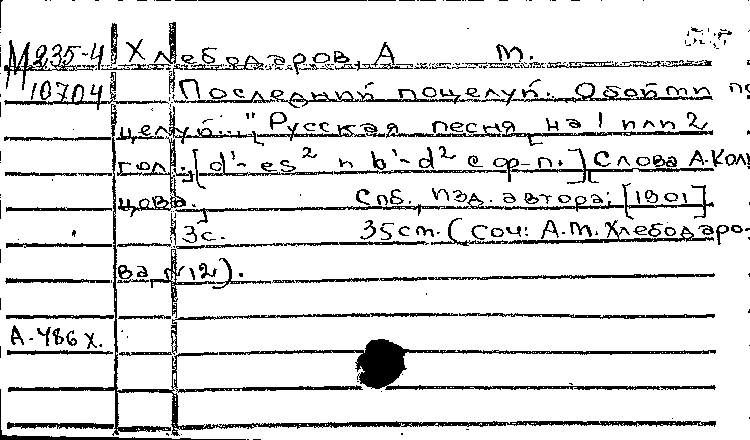 М235-4 Хлебодаров, А М.
10704 Последний поцелуй. Обойми по
целуй...", Русская песня на 1 или 2
гол., [d'-es² и b'-d² с ф-п.] Слова А. Коль
цова. Спб., изд. автора; [1901]
3с. 35cm. (Соч: А.М. Хлебодаро-
ва, 12).
А-486х.